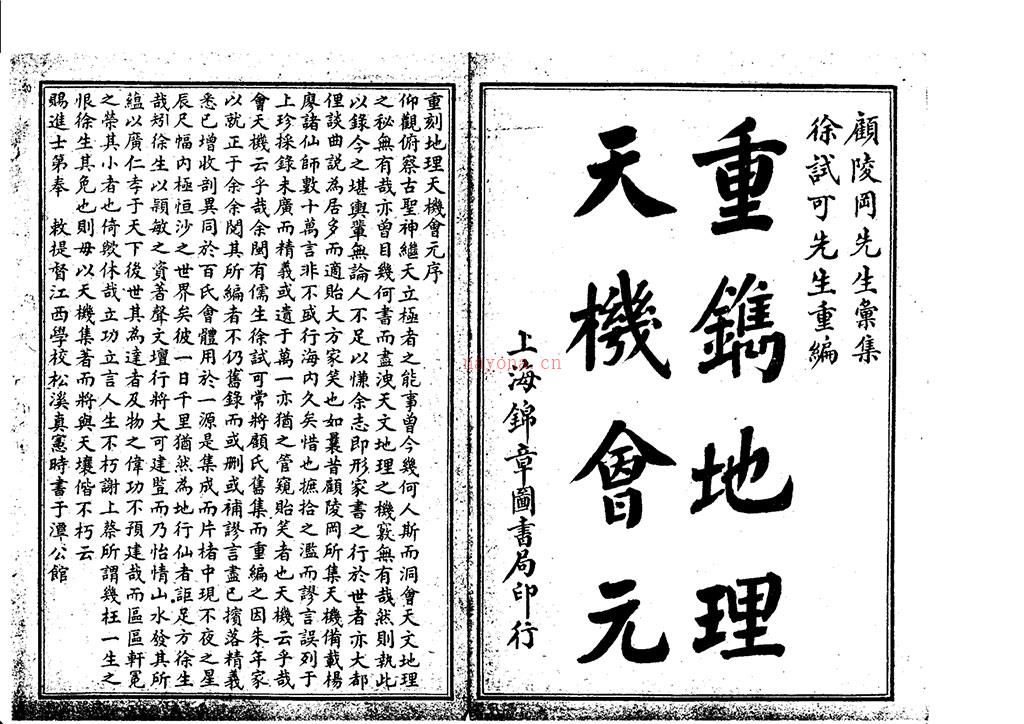 顧陵岡先生彙集
徐試可先生重編
重鐫地理
天機會元
上海錦章圖書局印行
nayona.cn
重刻地理天機會元序
仰觀俯察古聖神繼天立極者之能事曾今幾何人斯而洞會天文地理
之秘無有哉亦曾目幾何書而盡洩天文地理之機竅無有哉然則執此
以錄今之堪輿輩無論人不足以慊余志即形家書之行於世者亦大都
俚談曲說為居多而適貽大方家笑也如曩昔顧陵岡所集天機備載楊
廖諸仙師數十萬言非不或行海内久矣惜也摭拾之濫而謬言誤列于
上珍採錄未廣而精義或遺于萬一亦猶之管窺貽笑者也天機云乎哉
會天機云乎哉余閩有儒生徐試可常將顧氏舊集而重編之因朱年家
以就正于余余閱其所編者不仍舊錄而或删或補謬言盡已擯落精義
悉已增收剖異同於百氏會體用於一源是集成而片楮中現不夜之星
辰尺幅内極恒沙之世界矣彼一日千里猶然為地行仙者詎足方徐生
哉矧徐生以穎敏之資著聲文壇行將大可建豎而乃怡情山水發其所
蘊以廣仁孝于天下後世其為達者及物之偉功不預建哉而區區軒冕
之榮其小者也倚歟休哉立功立言人生不朽謝上蔡所謂幾枉一生之
恨徐生其免也則毋以天機集著而將與天壤偕不朽云
賜進士第奉　敕提督江西學校松溪真憲時書于潭公館